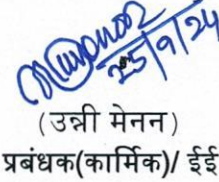 25/9/24
(उन्नी मेनन)
प्रबंधक(कार्मिक)/ ईई